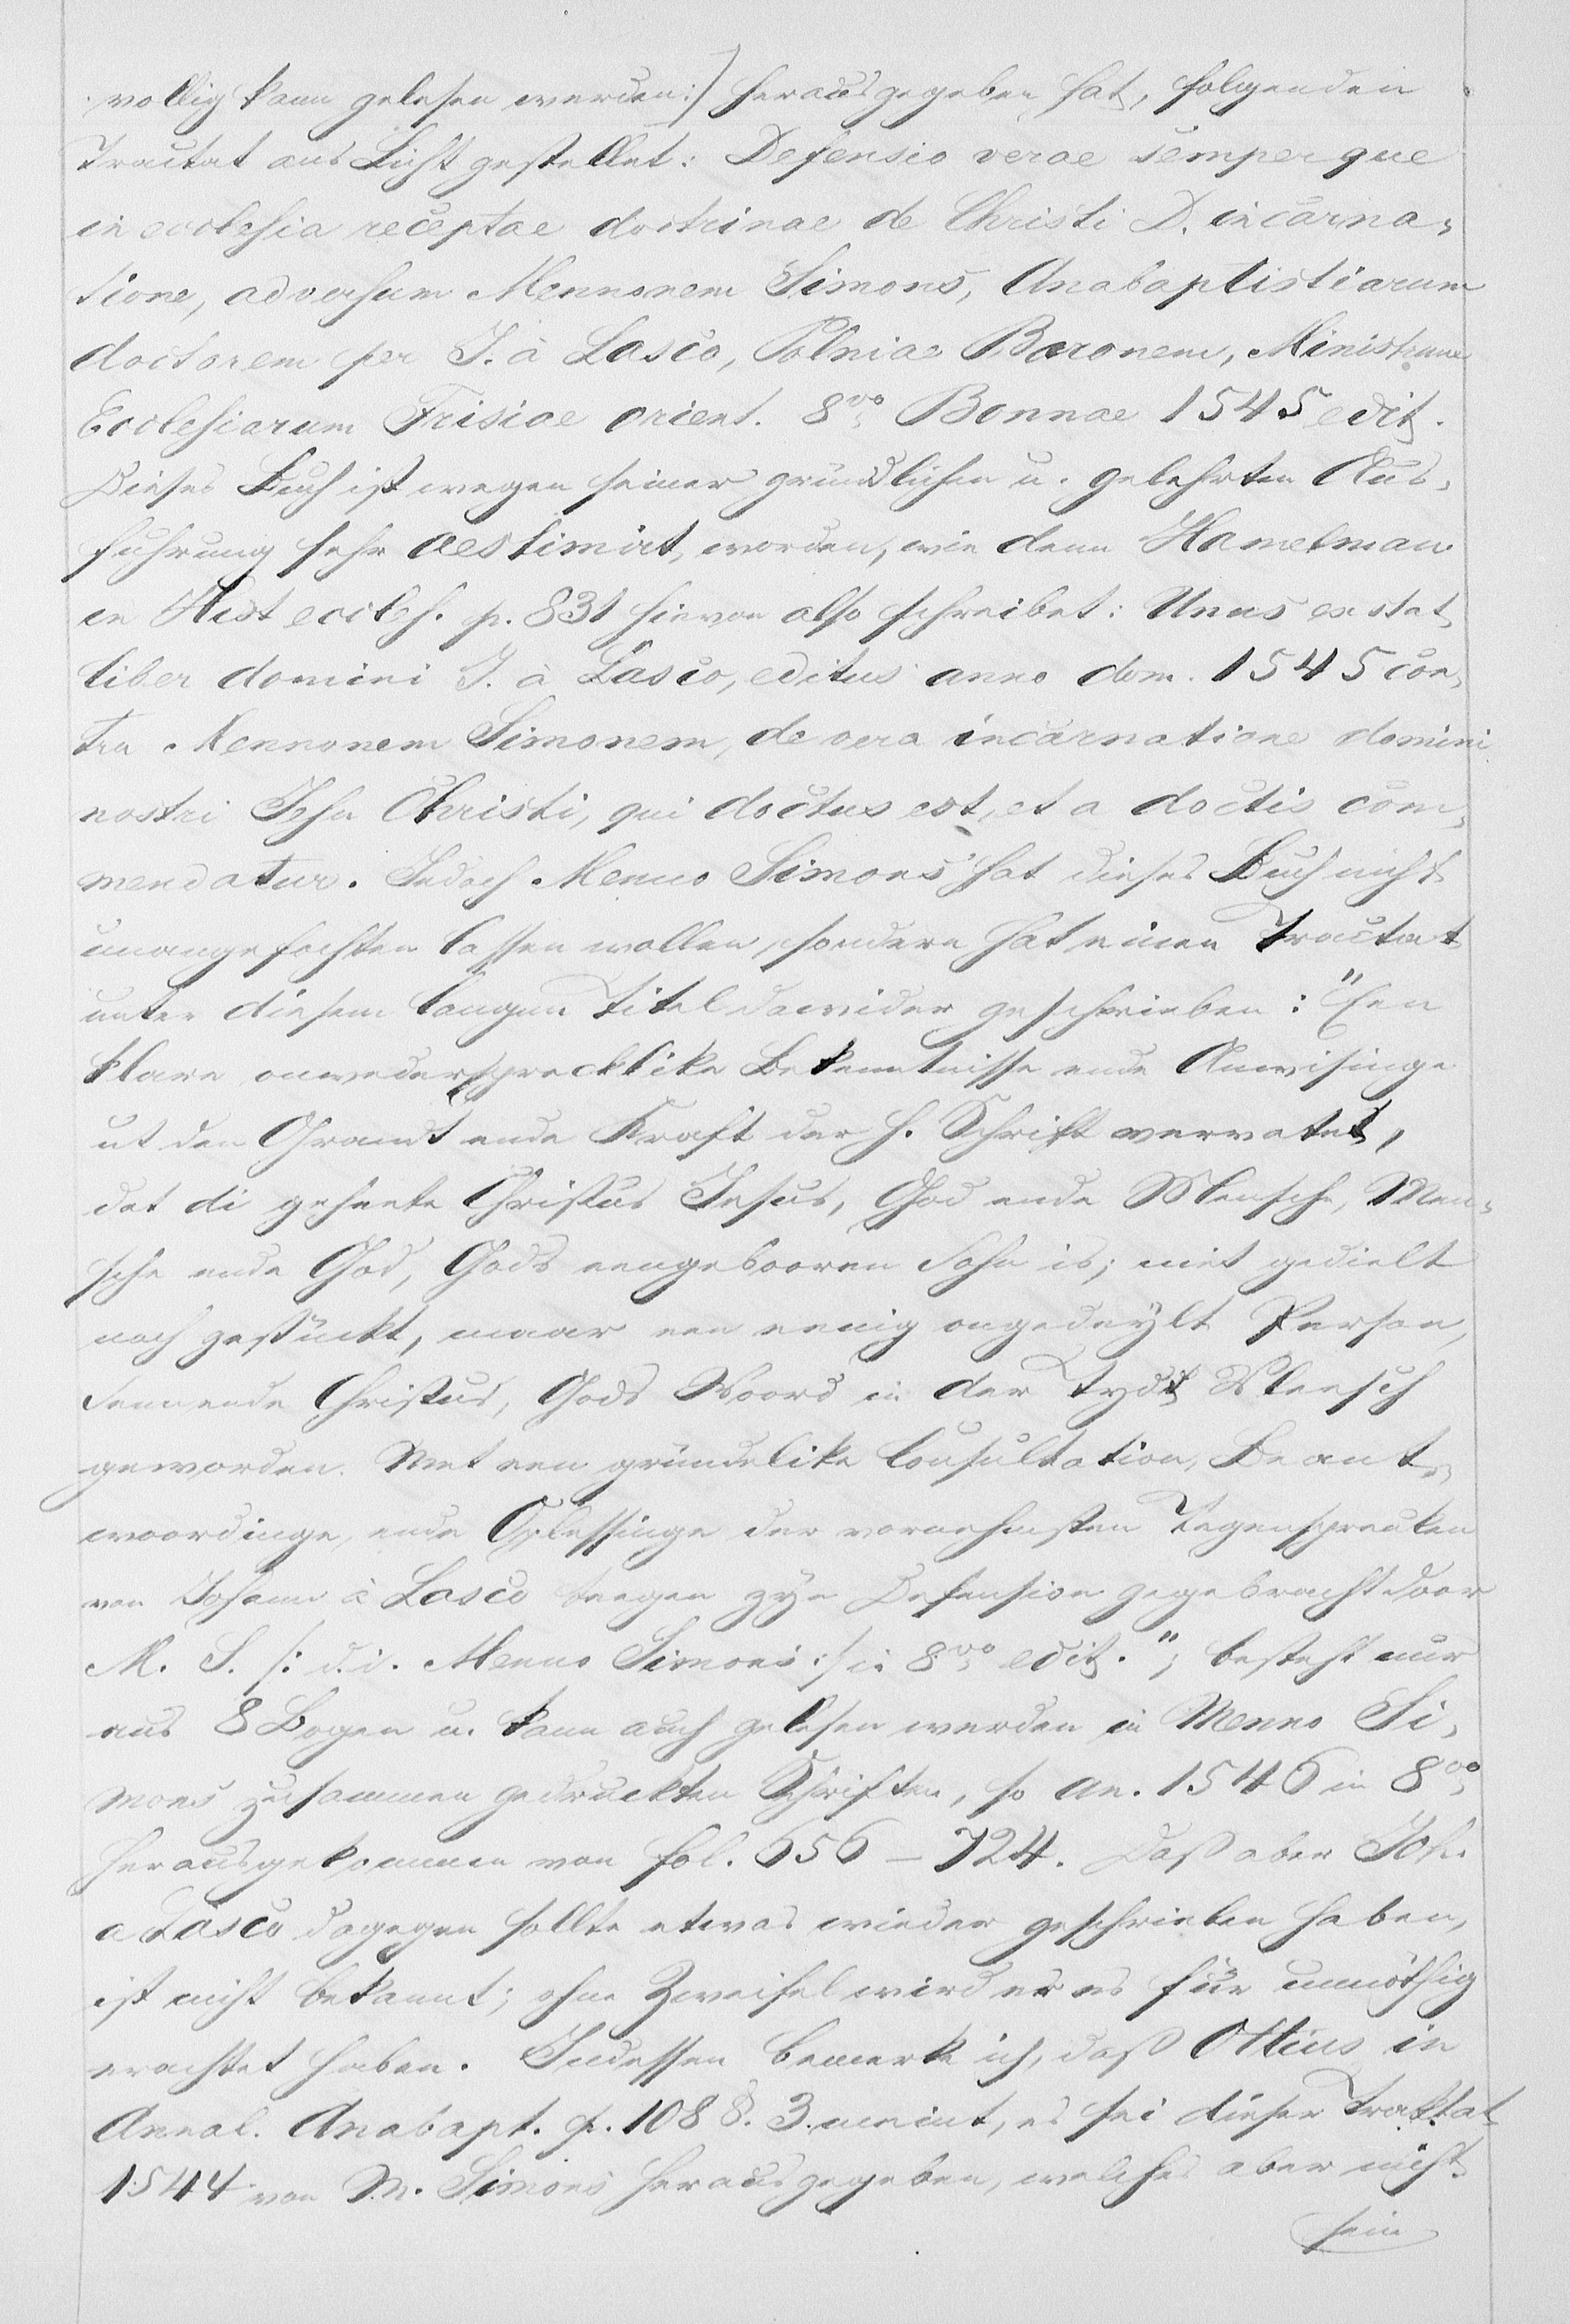 völlig kann gelesen werden:/ herausgegeben hat, folgenden
Tractat ans Licht gestellet: Defensio verae semperque
in ecclesia receptae doctrinae de Christi D. incarna-
tione, adversum Mennonem Simons, Anabaptistiarum
doctorem per J. à Lasco, Polniae Baronem, Ministrum
Ecclesiarum Frisiae orient. 8vo Bonnae 1545 edit.
Dieses Buch ist wegen seiner gründlichen u. gelehrten Aus-
führung sehr aestimirt worden, wie denn Hamelman
in Hist eccles. p. 831 hievon also schreibet: Unus exstat
liber domini J. à Lasco, editus anno dom. 1545 con-
tra Mennonem Simonem, de vera incarnatione domini
nostri Jesu Christi, qui doctus est, et a doctis com-
mendatur. Jedoch Menno Simons hat dieses Buch nicht
unangefochten lassen wollen, sondern hat einen Tractat
unter diesem langen Titel dawider geschrieben: "Een
klare onwedersprecklike Bekenntnisse ende Anwisinge
ut den Grandt ende Kraft der h. Schrift vervatet,
dat di geheele Christus Jesus, God ende Mensche, Men-
sche ende God, Gods eengebooren Sohn is; niet gedielt
noch gestückt, maar een eenig ongedeylt Person,
Sennende Christus, Gods Woord in der Tydt Mensch
geworden. Met een gründelike Consultation, Beant-
woordinge, ende Oplessinge der vornehmsten Tegenspreuken
van Johann à Lasco teegen zyn Defension gegebracht door
M. S. /: d. i. Menno Simons :/ in 8vo edit."; besteht nur
aus 8 Bogen u. kann auch gelesen werden in Menno Si-
mons zusammen gedruckten Schriften, so an. 1546 in 8vo
herausgekommen von fol. 656 – 724. Daß aber Joh.
a Lasco dagegen sollte etwas wieder geschrieben haben,
ist nicht bekannt; ohne Zweifel wird er es für unnöthig
erachtet haben. Indessen bemerk ich, daß Ottius in
Annal. Anabapt. p. 108 §. 3. meint, es sei dieser Traktat
1544 von M. Simons herausgegeben, welches aber nicht
sein